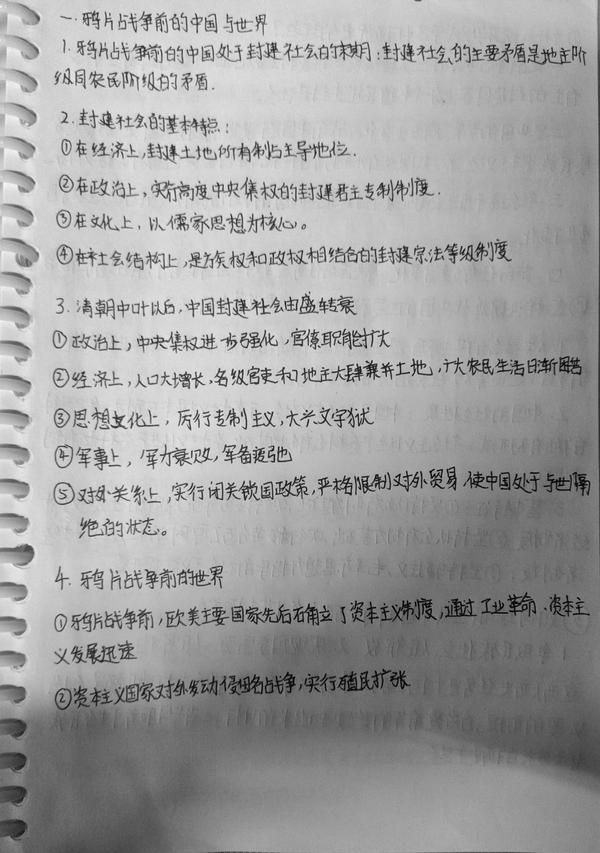 一.鸦片战争前的中国与世界
1.鸦片战争前的中国处于封建社会的末期;封建社会的主要矛盾是地主阶
级同农民阶级的矛盾.
2.封建社会的基本特点:
①在经济上,封建土地所有制占主导地位.
②在政治上,实行高度中央集权的封建君主专制制度.
③在文化上,以儒家思想为核心。
④在社会结构上,是族权和政权相结合的封建宗法等级制度
3.清朝中叶以后,中国封建社会由盛转衰
①政治上,中央集权进一步强化,官僚职能扩大
②经济上,人口大增长,各级官吏和地主大肆兼并土地,广大农民生活日渐困苦
③思想文化上,厉行专制主义,大兴文字狱
④军事上,军力衰败,军备废弛
⑤对外关系上,实行闭关锁国政策,严格限制对外贸易,使中国处于与世隔
绝的状态。
4.鸦片战争前的世界
①鸦片战争前,欧美主要国家先后确立了资本主义制度,通过工业革命.资本主
义发展迅速
②资本主义国家对外发动侵略战争,实行殖民扩张